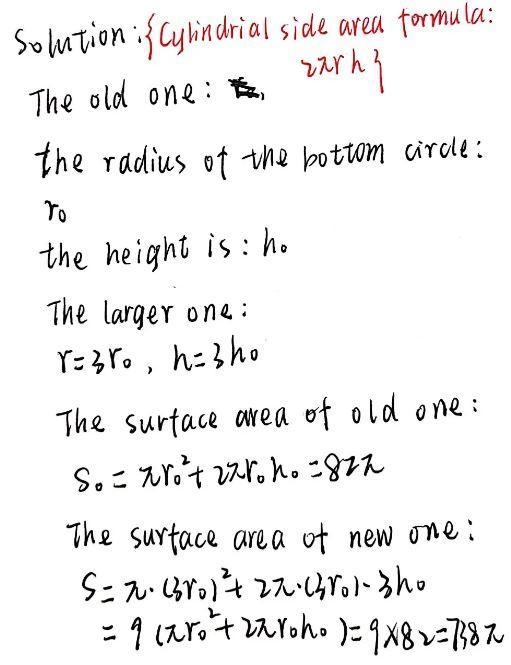 Solution:{Cylindrial side area formula:
2πrh}
The old one:
the radius of the bottom circle:
r₀
the height is: h₀
The larger one:
r=3r₀, h=3h₀
The surface area of old one:
S₀ = πr₀²+2πr₀h₀=82π
The surface area of new one:
S=π·(3r₀)²+2π·(3r₀)·3h₀
= 9(πr₀²+2πr₀h₀)=9×82=738π